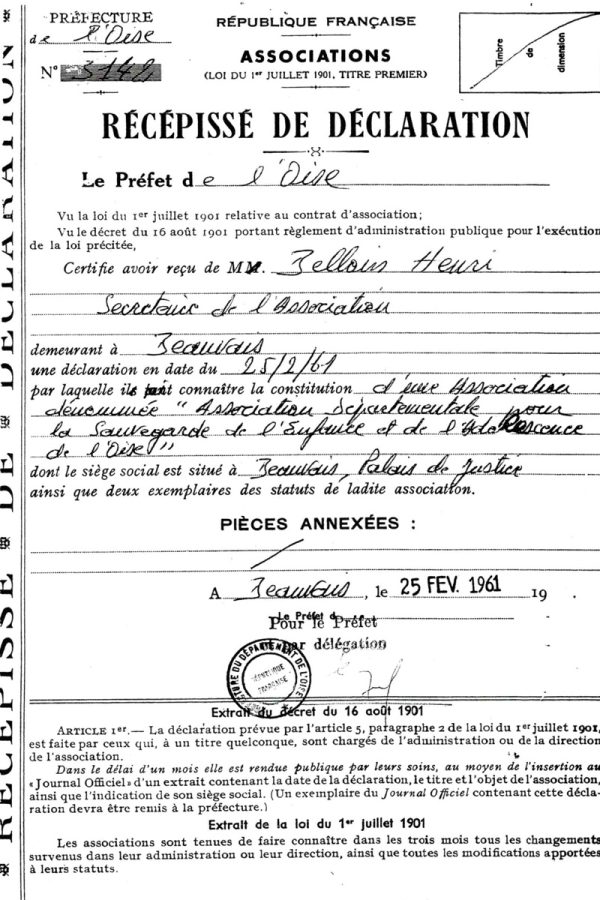 PRÉFECTURE
de l'Oise
N° 3148
RÉPUBLIQUE FRANÇAISE
ASSOCIATIONS
(LOI DU 1er JUILLET 1901, TITRE PREMIER)
Timbre
de
dimension
RÉCÉPISSÉ DE DÉCLARATION
RÉCÉPISSÉ DE DÉCLARATION
Le Préfet de l'Oise
Vu la loi du 1er juillet 1901 relative au contrat d'association;
Vu le décret du 16 août 1901 portant règlement d'administration publique pour l'exécution
de la loi précitée,
Certifie avoir reçu de MM. Henri
Secrétaire de l'Association
demeurant à Beauvais
une déclaration en date du 25/2/61
par laquelle ils connaître la constitution d'une Association
dénommée "Association départementale pour
la Sauvegarde de l'Enfance et de l'Adolescence
de l'Oise"
dont le siège social est situé à Beauvais, Palais de Justice
ainsi que deux exemplaires des statuts de ladite association.
PIÈCES ANNEXÉES :
A Beauvais, le 25 FEV. 1961 19 .
Le Préfet d
Pour le Préfet
par délégation
PRÉFECTURE DU DÉPARTEMENT DE L'OISE
RÉPUBLIQUE
FRANÇAISE
Extrait du décret du 16 août 1901
ARTICLE 1er.— La déclaration prévue par l'article 5, paragraphe 2 de la loi du 1er juillet 1901,
est faite par ceux qui, à un titre quelconque, sont chargés de l'administration ou de la direction
de l'association.
Dans le délai d'un mois elle est rendue publique par leurs soins, au moyen de l'insertion au
«Journal Officiel» d'un extrait contenant la date de la déclaration, le titre et l'objet de l'association,
ainsi que l'indication de son siège social. (Un exemplaire du Journal Officiel contenant cette décla-
ration devra être remis à la préfecture.)
Extrait de la loi du 1er juillet 1901
Les associations sont tenues de faire connaître dans les trois mois tous les changements
survenus dans leur administration ou leur direction, ainsi que toutes les modifications apportées
à leurs statuts.